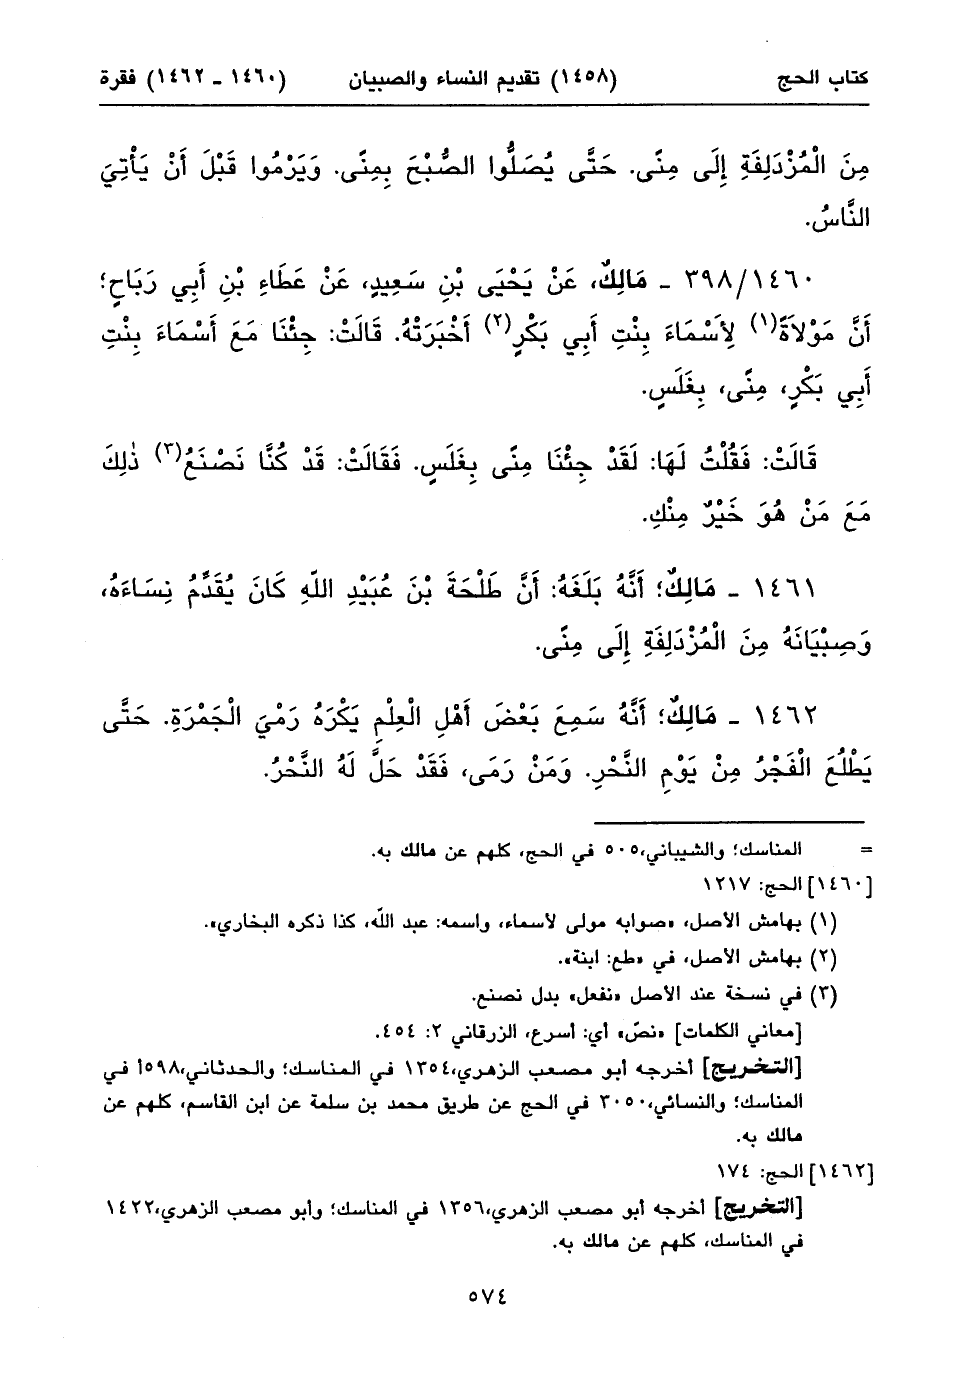 كتاب الحج (١٤٥٨) تقديم النساء والصبيان (١٤٦٠ - ١٤٦٢) فقرة
مِنَ الْمُزْدَلِفَةِ إِلَى مِنًى. حَتَّى يُصَلُّوا الصُّبْحَ بِمِنًى. وَيَرْمُوا قَبْلَ أَنْ يَأْتِيَ
النَّاسُ.
٣٩٨/١٤٦٠ - مَالِكٌ، عَنْ يَحْيَى بْنِ سَعِيدٍ، عَنْ عَطَاءِ بْنِ أَبِي رَبَاحٍ؛
أَنَّ مَوْلَاةً(١) لِأَسْمَاءَ بِنْتِ أَبِي بَكْرٍ(٢) أَخْبَرَتْهُ. قَالَتْ: جِئْنَا مَعَ أَسْمَاءَ بِنْتِ
أَبِي بَكْرٍ، مِنًى، بِغَلَسٍ.
قَالَتْ: فَقُلْتُ لَهَا: لَقَدْ جِئْنَا مِنًى بِغَلَسٍ. فَقَالَتْ: قَدْ كُنَّا نَصْنَعُ(٣) ذٰلِكَ
مَعَ مَنْ هُوَ خَيْرٌ مِنْكِ.
١٤٦١ - مَالِكٌ؛ أَنَّهُ بَلَغَهُ: أَنَّ طَلْحَةَ بْنَ عُبَيْدِ اللّهِ كَانَ يُقَدِّمُ نِسَاءَهُ،
وَصِبْيَانَهُ مِنَ الْمُزْدَلِفَةِ إِلَى مِنًى.
١٤٦٢ - مَالِكٌ؛ أَنَّهُ سَمِعَ بَعْضَ أَهْلِ الْعِلْمِ يَكْرَهُ رَمْيَ الْجَمْرَةِ. حَتَّى
يَطْلُعَ الْفَجْرُ مِنْ يَوْمِ النَّحْرِ. وَمَنْ رَمَى، فَقَدْ حَلَّ لَهُ النَّحْرُ.
= المناسك؛ والشيباني،٥٠٥ في الحج، كلهم عن مالك به.
[١٤٦٠] الحج: ١٢١٧
(١) بهامش الأصل، «صوابه مولى لأسماء، واسمه: عبد الله، كذا ذكره البخاري».
(٢) بهامش الأصل، في «طع: ابنة».
(٣) في نسخة عند الأصل «نفعل» بدل نصنع.
[معاني الكلمات] «نصّ» أي: أسرع، الزرقاني ٢: ٤٥٤.
[التخريج] أخرجه أبو مصعب الزهري،١٣٥٤ في المناسك؛ والحدثاني،٥٩٨أ في
المناسك؛ والنسائي،٣٠٥٠ في الحج عن طريق محمد بن سلمة عن ابن القاسم، كلهم عن
مالك به.
[١٤٦٢] الحج: ١٧٤
[التخريج] أخرجه أبو مصعب الزهري،١٣٥٦ في المناسك؛ وأبو مصعب الزهري،١٤٢٢
في المناسك، كلهم عن مالك به.
٥٧٤